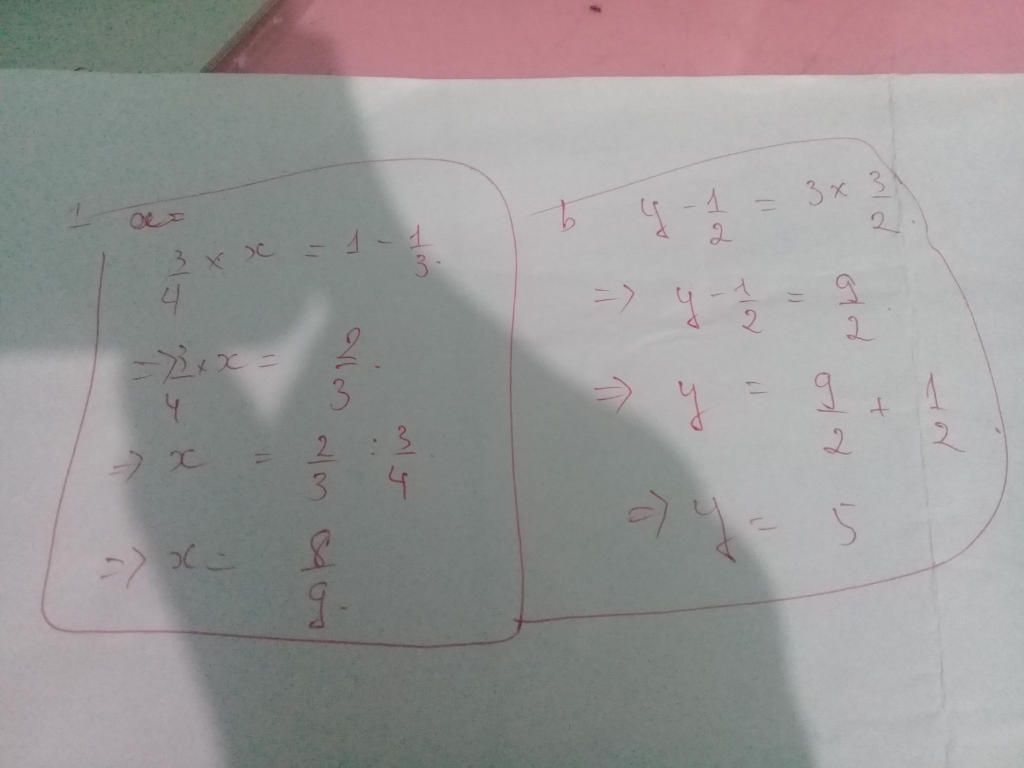 1 x=
3/4 × x = 1 - 1/3.
=> 3/4 × x = 2/3.
=> x = 2/3 : 3/4.
=> x = 8/9.
b y - 1/2 = 3 × 3/2.
=> y - 1/2 = 9/2.
=> y = 9/2 + 1/2.
=> y = 5